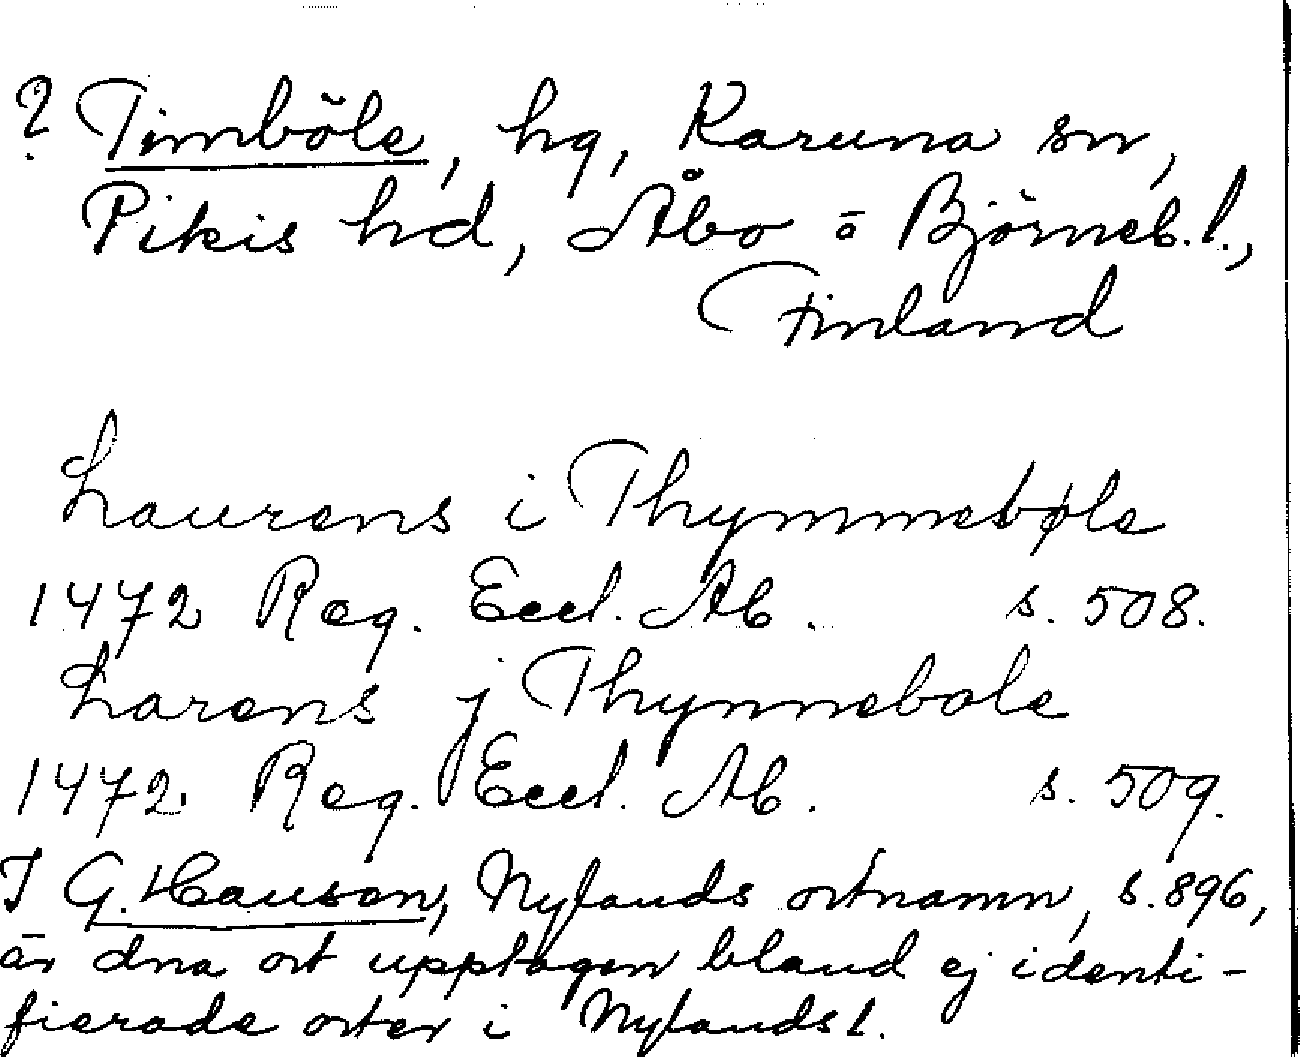 ? Timböle, hg, Karuna sn,
Pikis hd, Åbo o Björneb. l.,
Finland
Laurens i Thymmebøle
1472 Reg. Eccl. Ab. s. 508.
Larens j Thynnebole
1472 Reg. Eccl. Ab. s. 509.
I G. Hauson, Nylands ortnamn, s. 896,
är dna ort upptagen bland ej identi-
fierade orter i Nylands l.